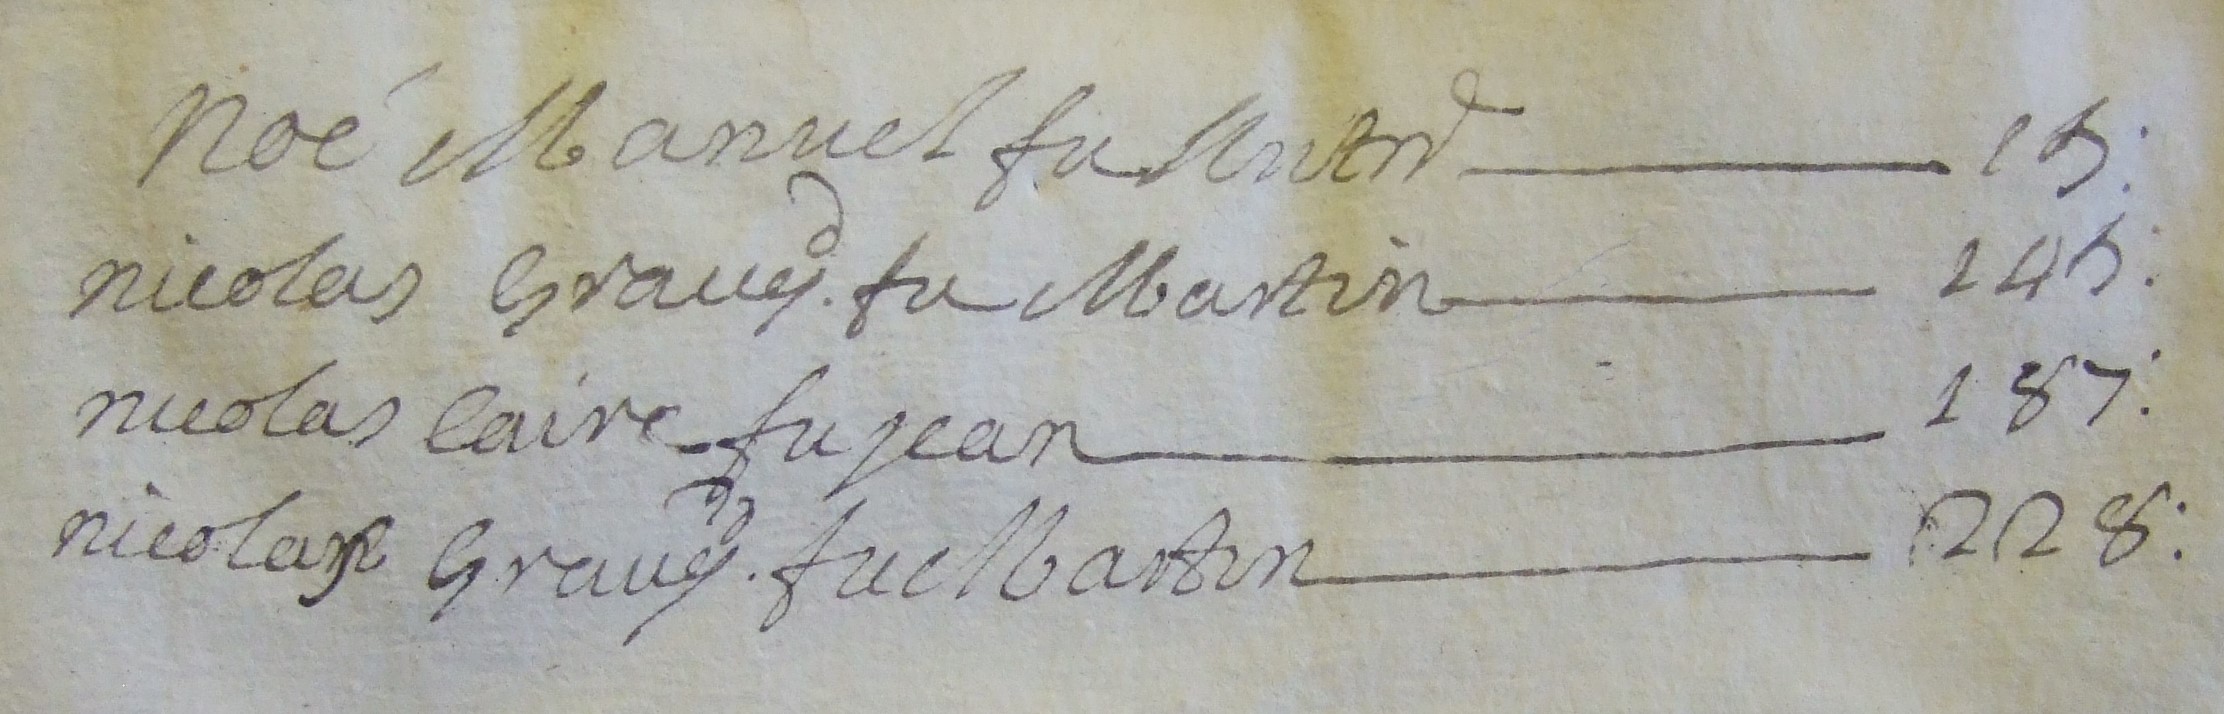 Noé Manuel fu Antne 15:
nicolas Graug. fu Martin 245:
nicolas Caire fu jean 187:
nicolas Graug. fu Martin 228: